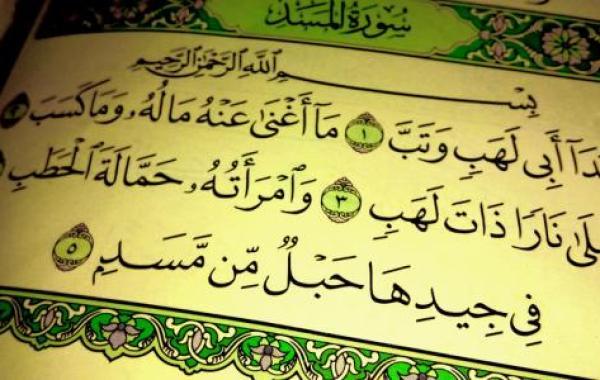 سُورَةُ المَسَدِ
بِسْمِ ٱللَّهِ ٱلرَّحْمَٰنِ ٱلرَّحِيمِ
أَبِي لَهَبٍ وَتَبَّ ١ مَآ أَغْنَىٰ عَنْهُ مَالُهُۥ وَمَا كَسَبَ ٢
نَارًا ذَاتَ لَهَبٍ ٣ وَٱمْرَأَتُهُۥ حَمَّالَةَ ٱلْحَطَبِ
فِي جِيدِهَا حَبْلٌ مِّن مَّسَدٍۭ ٥